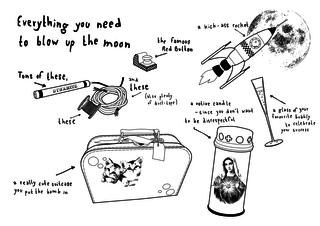 Everything you need
to blow up the moon
a kick-ass rocket
the Famous
Red Button
Tons of these,
DYNAMITE
and
these
(also plenty
of duct-tape)
these
a votive candle
- since you don't want
to be disrespectful
a glass of your
favourite bubbly
to celebrate
your success
a really cute suitcase
you put the bomb in